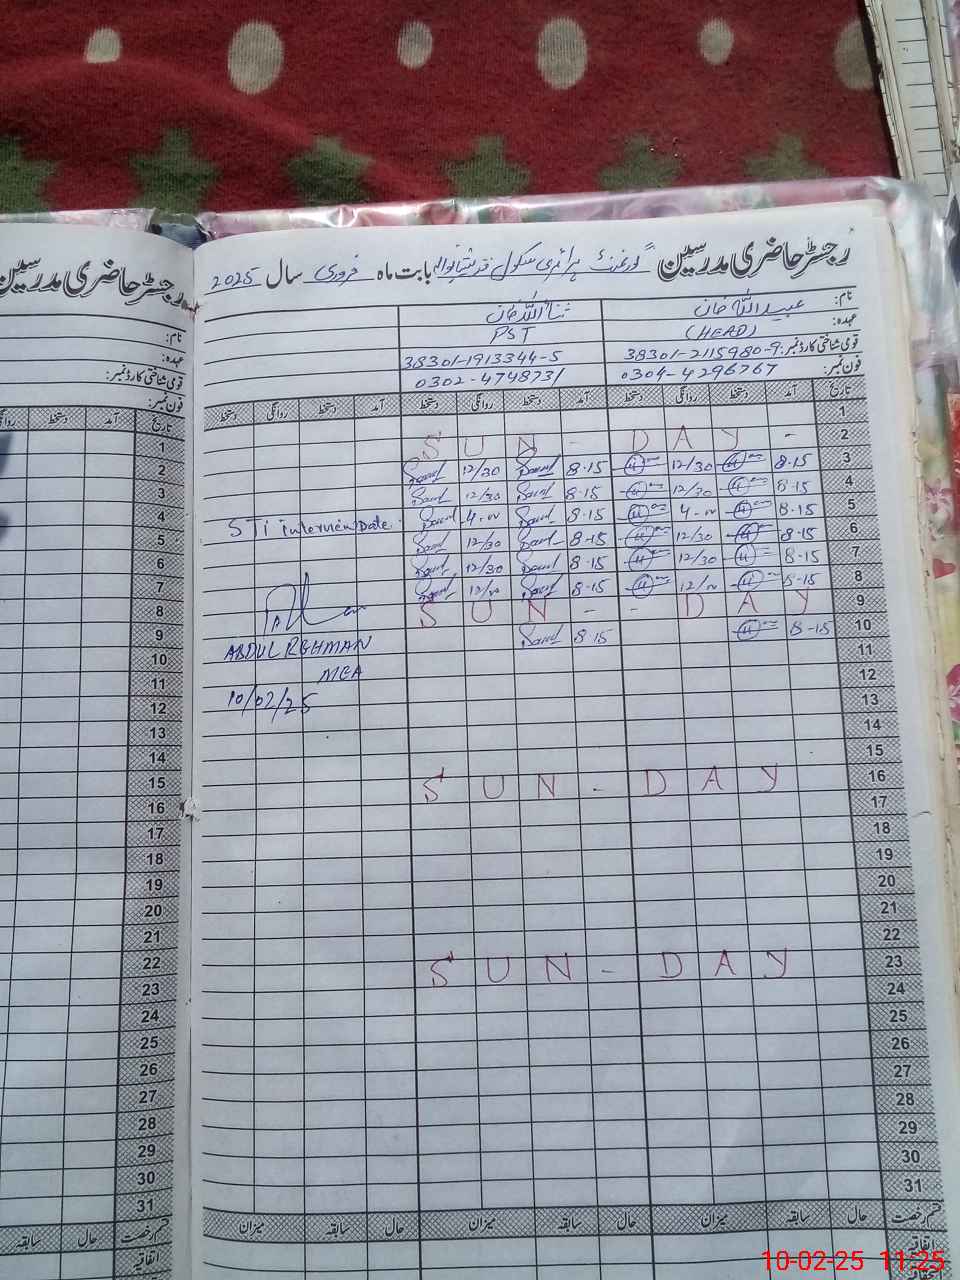 رجسٹر حاضری مدرسین گورنمنٹ پرائمری سکول بابت ماہ فروری سال 2025
نام: عبید اللہ خان ثناء اللہ خان
عہدہ: (HEAD) PST
قومی شناختی کارڈ نمبر: 38301-2115980-9 38301-1913344-5
فون نمبر: 0304-4296767 0302-4748731
تاریخ آمد دستخط روانگی دستخط آمد دستخط روانگی دستخط آمد دستخط روانگی دستخط
1
2 SUN - DAY -
3 8-15 12/30 8-15 12/30
4 8-15 12/30 8-15 12/30
5 8-15 4-00 8-15 4-00 STI interview Date
6 8-15 12/30 8-15 12/30
7 8-15 12/30 8-15 12/30
8 8-15 12/00 8-15 12/00
9 SUN - - DAY
10 8-15 8-15
ABDUL REHMAN
11
MEA
12
10/02/25
13
14
15
16 SUN - DAY
17
18
19
20
21
22
23 SUN - DAY
24
25
26
27
28
29
30
31
قسم رخصت حال سابقہ میزان حال سابقہ میزان حال سابقہ میزان
اتفاقیہ
رجسٹر حاضری مدرسین
نام:
عہدہ:
قومی شناختی کارڈ نمبر:
فون نمبر:
تاریخ آمد دستخط روانگی
1
2
3
4
5
6
7
8
9
10
11
12
13
14
15
16
17
18
19
20
21
22
23
24
25
26
27
28
29
30
31
قسم رخصت حال سابقہ
اتفاقیہ
10-02-25 11:25